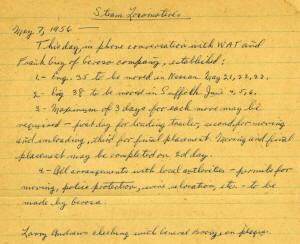 Steam Locomotives
May 7, 1956
This day, in phone conversation with WAT and
Frank of Gerosa company, established:
1.- Eng. 35 to be moved in May 21, 22, 23.
2- Eng 38 to be moved in Suffolk June 4, 5, 6.
3 - Maximum of 3 days for each move may be
required - first day for loading trailer, second for moving
and unloading, third for final placement. Moving and final
placement may be completed on 2d day.
4 - All arrangements with local authorities - permits for
moving, police protection, wire relocation, etc. - to be
made by Gerosa.
Larry Andrews checking with General on